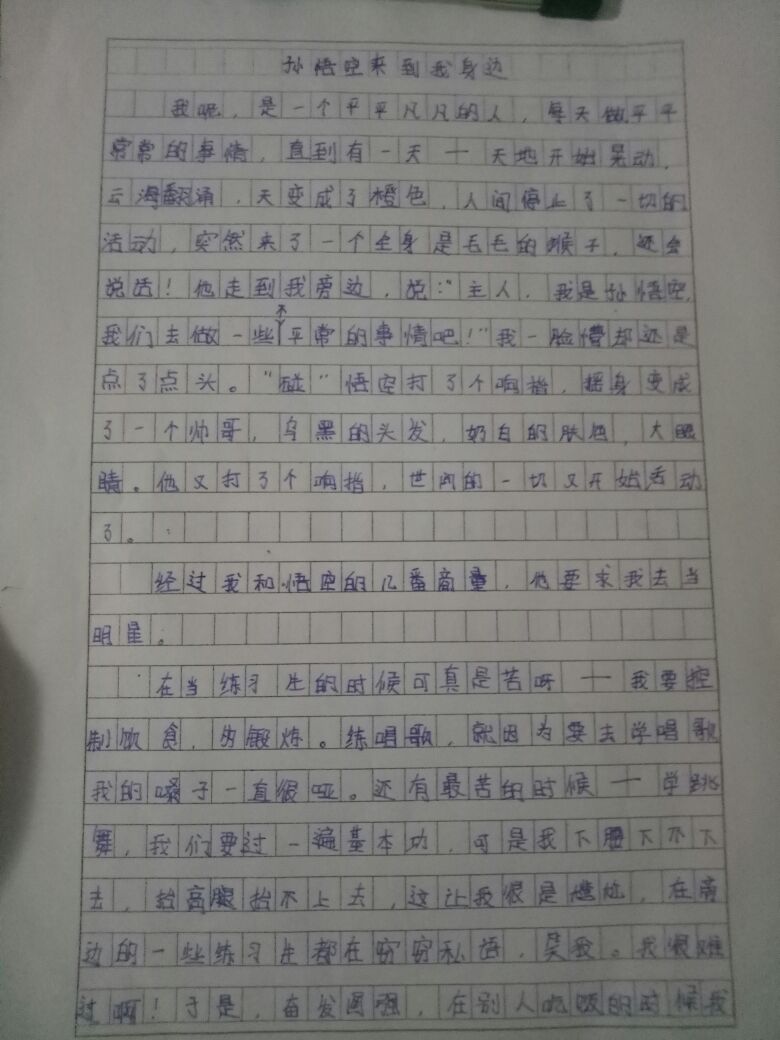 孙悟空来到我身边
我呢，是一个平平凡凡的人，每天做平平
常常的事情，直到有一天——天地开始晃动，
云海翻涌，天变成了橙色，人间停止了一切的
活动，突然来了一个全身是毛毛的猴子，还会
说话！他走到我旁边，说：“主人，我是孙悟空，
我们去做一些不平常的事情吧！”我一脸懵却还是
点了点头。“碰”悟空打了个响指，摇身变成
了一个帅哥，乌黑的头发，奶白的肤色，大眼
睛。他又打了个响指，世间的一切又开始活动
了。
经过我和悟空的几番商量，他要求我去当
明星。
在当练习生的时候可真是苦呀——我要控
制饮食，为锻炼。练唱歌，就因为要去学唱歌
我的嗓子一直很哑。还有最苦的时候——学跳
舞，我们要过一遍基本功，可是我下腰下不下
去，抬高腿抬不上去，这让我很是尴尬，在旁
边的一些练习生都在窃窃私语，笑我。我很难
过啊！于是，奋发图强，在别人吃饭的时候我